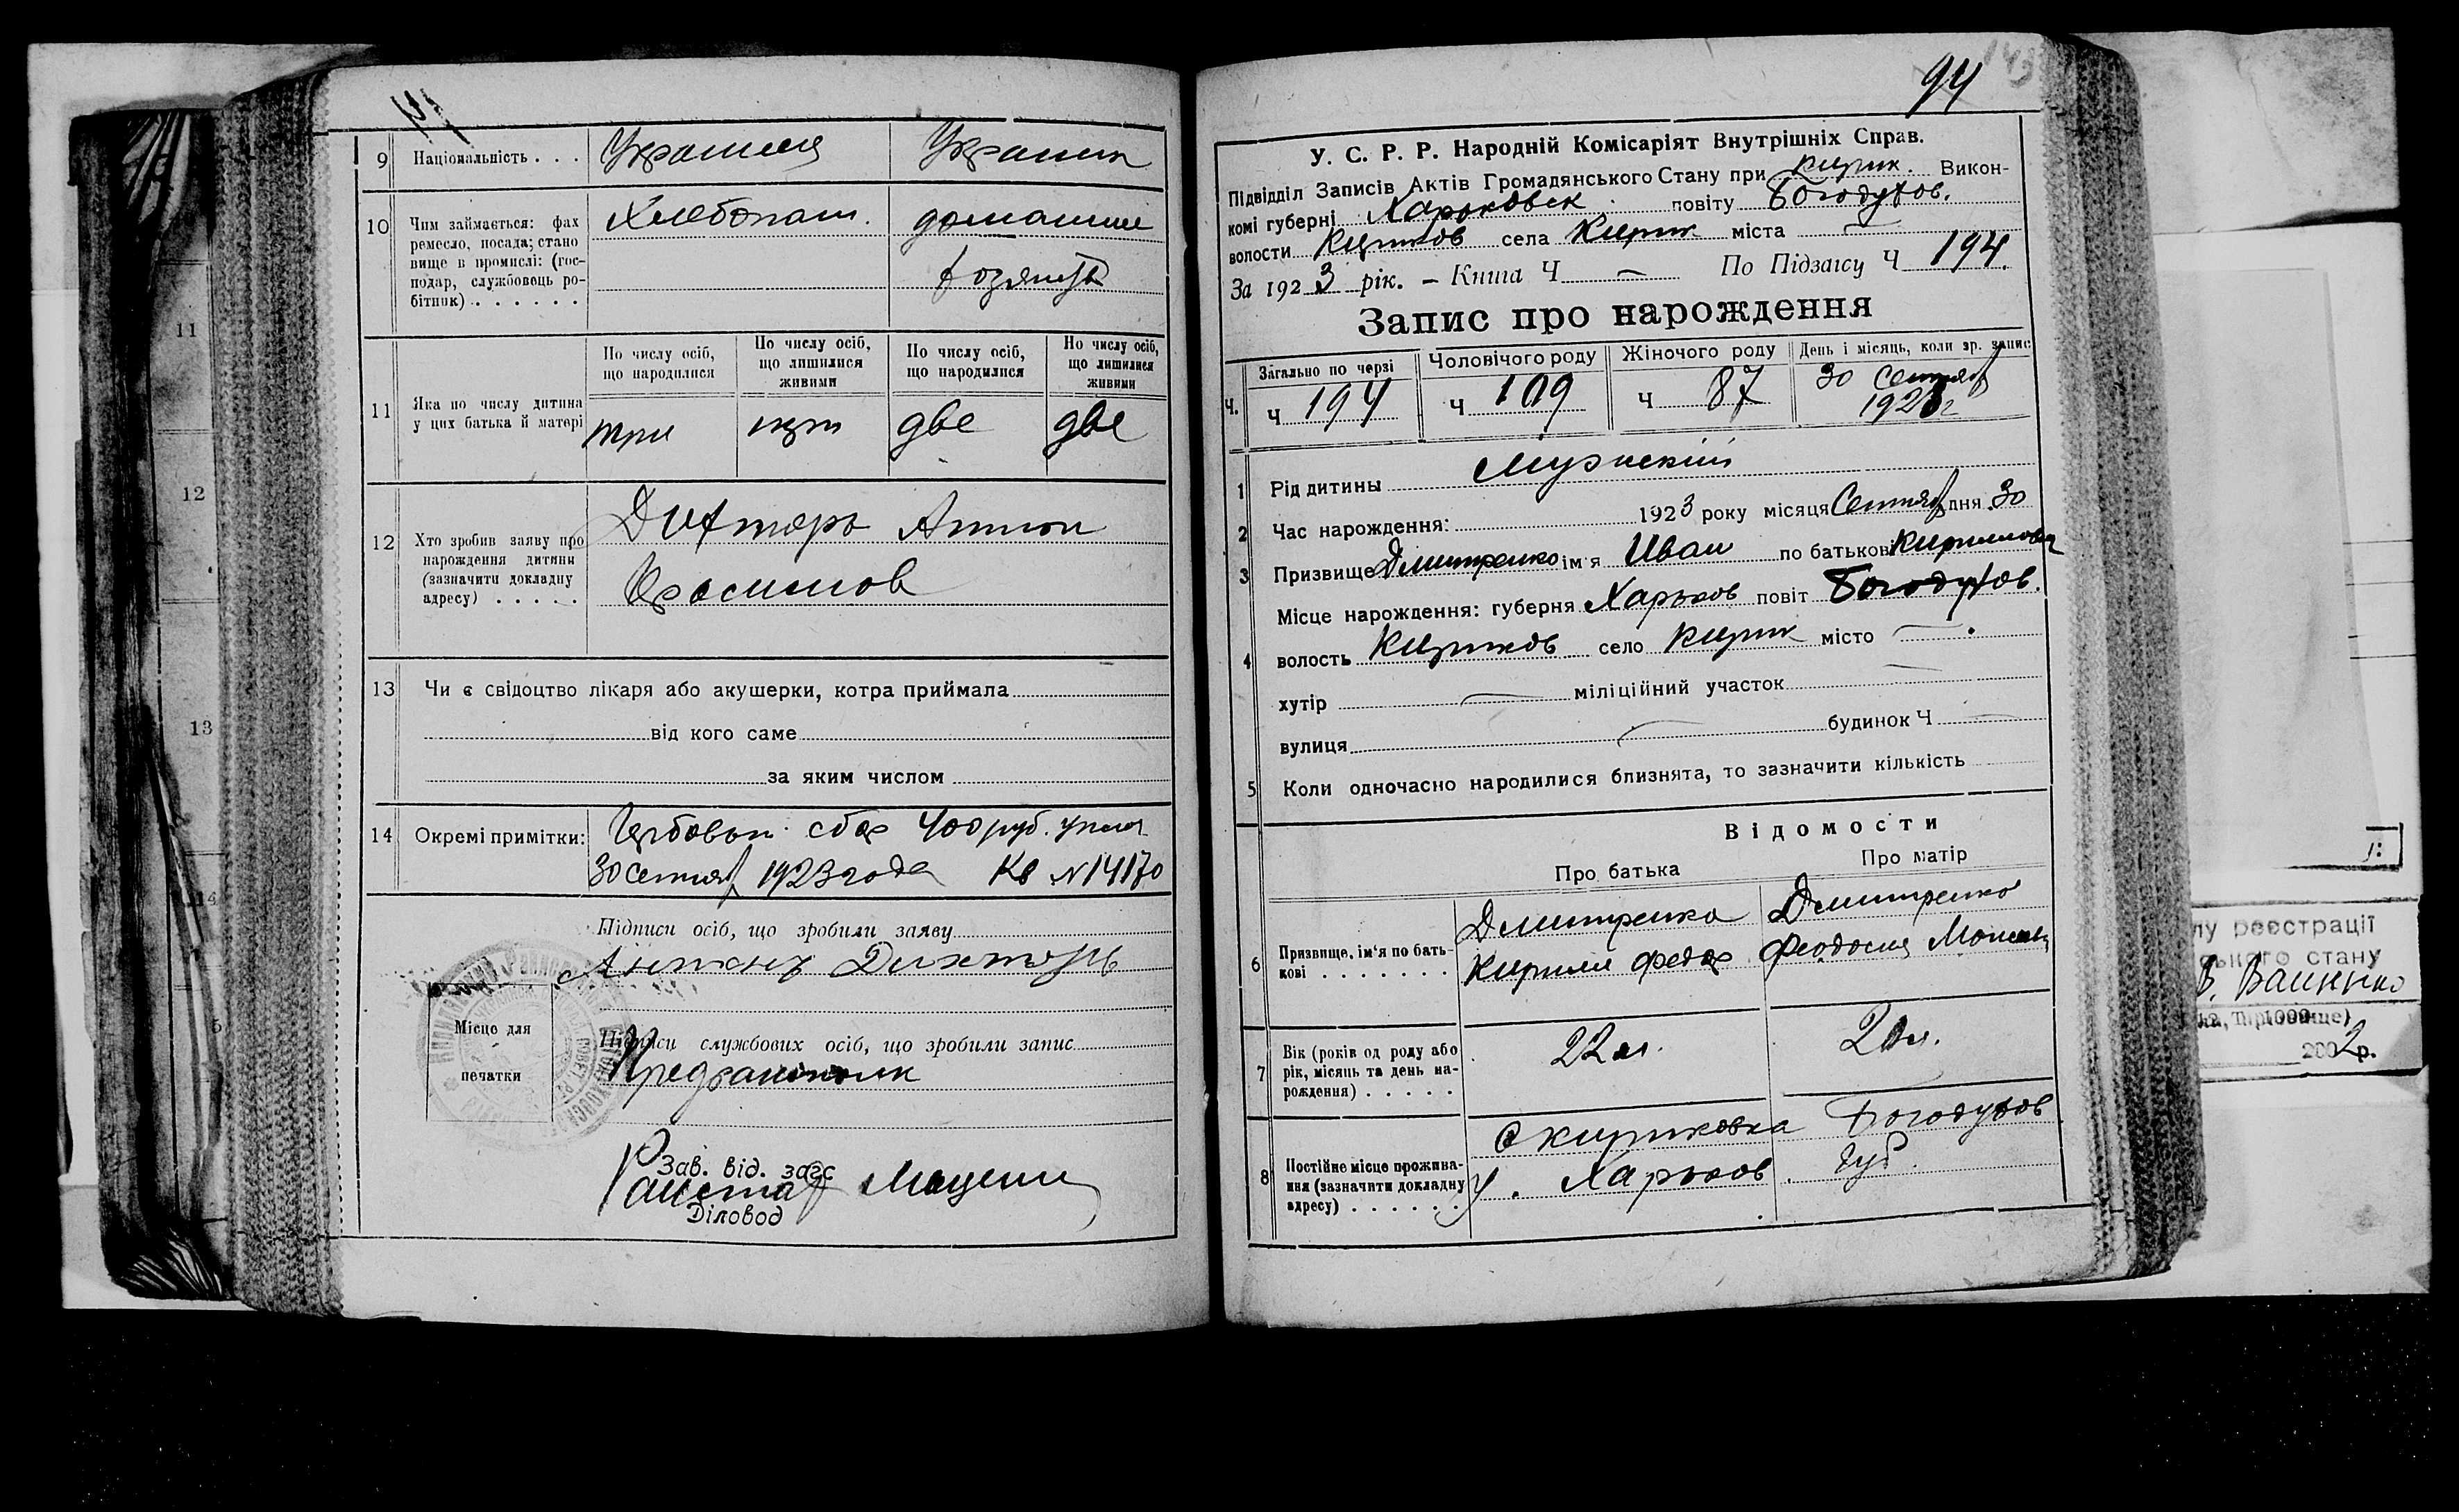 9 Національность . . .
Украинец Украин
10 Чим займається: фах
ремесло, посада; стано
вище в промислі: (гос-
подар, службовець ро-
бітник) . . . . . .
Хлебопаш. домашне
хозяйств
11 Яка по числу дитина
у цих батька й матері
По числу осіб,
що народилися
По числу осіб,
що лишилися
живими
По числу осіб,
що народилися
Но числу осіб,
що лишилися
живими
три три две две
12 Хто зробив заяву про
нарождення дитини
(зазначити докладну
адресу) . . . . .
Дихтярь Антон
13 Чи є свідоцтво лікаря або акушерки, котра приймала
від кого саме
за яким числом
14 Окремі примітки:
Гербовый сбор 400 руб. упл
30 Сентяб 1923 года Кв №14170
Підписи осіб, що зробили заяву
Антонъ Дихтярь
Місце для
печатки
Підписи службових осіб, що зробили запис
Предволисполк
Зав. від. загс
Діловод
94
У. С. Р. Р. Народній Комісаріят Внутрішніх Справ.
Підвідділ Записів Актів Громадянського Стану при Кирик. Викон-
комі губерні Харьковск повіту Богодухов.
волости Кириков села Кирик міста —
За 1923 рік. — Книга Ч — По Підзагсу Ч 194.
Запис про нарождення
Ч. Загально по черзі Чоловічого роду Жіночого роду День і місяць, коли зр. запис
Ч 194 Ч 109 Ч 87 30 Сентяб
1923 г
1 Рід дитины Мужский
2 Час нарождення: 1923 року місяця Сентяб дня 30
3 Призвище Дмитренко ім'я Иван по батькові Кириллович
4 Місце нарождення: губерня Харьков повіт Богодухов.
волость Кириков село Кирик місто —
хутір — міліційний участок —
вулиця — будинок Ч —
5 Коли одночасно народилися близнята, то зазначити кількість
Відомости
Про батька Про матір
6 Призвище, ім'я по бать-
кові . . . . . . .
Дмитренко
Кирилл Федор
Дмитренко
Феодосия Моисеев
7 Вік (років од роду або
рік, місяць та день на-
рождення) . . . . .
22 л. 20 л.
8 Постійне місце прожива-
ння (зазначити докладну
адресу) . . . . . .
с Кириковка Богодухов
у. Харьков губ.
11
12
13
14
лу реєстрації
ського стану
2002р.